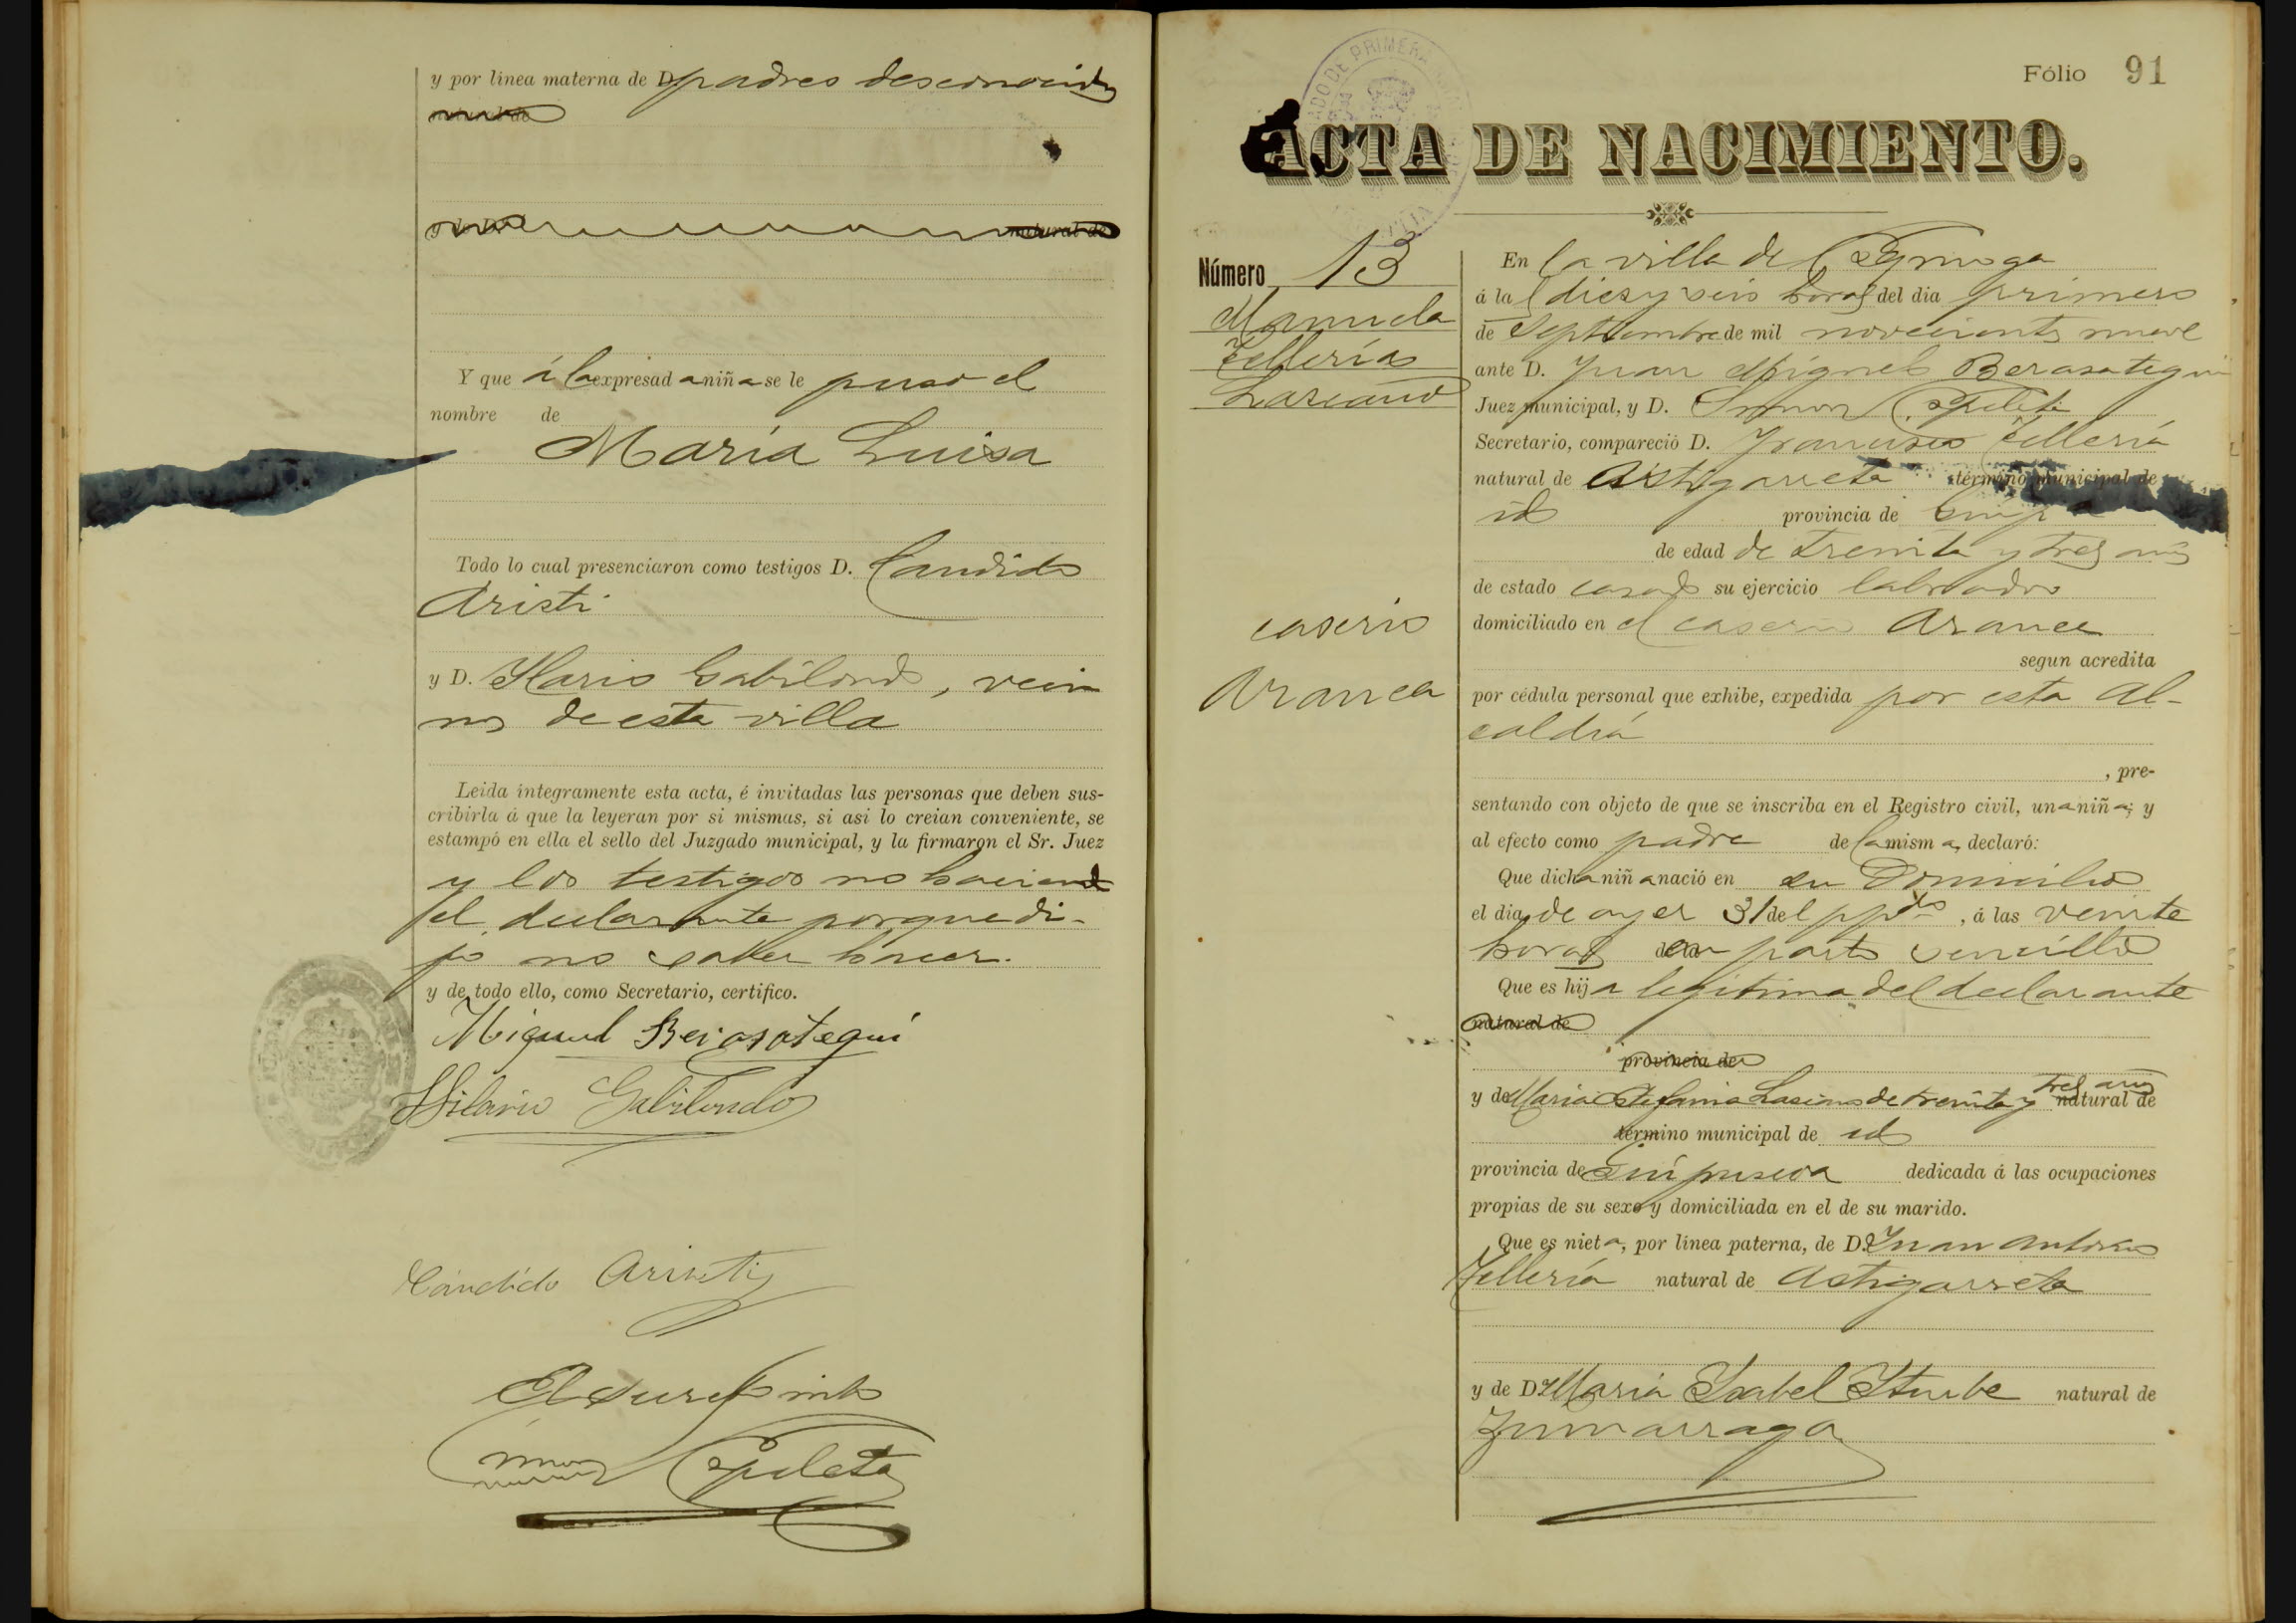 y por línea materna de D. padres desconocidos
natural de
y de Dª natural de
Y que á la expresada niña se le puso el
nombre de
María Luisa
Todo lo cual presenciaron como testigos D. Candido
Aristi
y D. Ylario Gabilondo, veci
nos de esta villa
Leida íntegramente esta acta, é invitadas las personas que deben sus-
cribirla á que la leyeran por si mismas, si asi lo creian conveniente, se
estampó en ella el sello del Juzgado municipal, y la firmaron el Sr. Juez
y los testigos no haciendo
el declarante porque di-
jo no saber hacer.
y de todo ello, como Secretario, certifico.
Miguel Berasategui
Hilario Gabilondo
Cándido Aristi
Fólio 91
ACTA DE NACIMIENTO.
Número 13
Manuela
Tellería
Lascano
caserio
Aranea
En la villa de
á las diez y seis horas del dia primero
de Septiembre de mil novecientos nueve
ante D. Juan Miguel Berasategui
Juez municipal, y D. Simon
Secretario, compareció D. Francisco Tellería
natural de Astigarreta término municipal de
id provincia de
de edad de treinta y tres años
de estado casado su ejercicio labrador
domiciliado en el caserio Aranea
segun acredita
por cédula personal que exhibe, expedida por esta Al-
caldía
, pre-
sentando con objeto de que se inscriba en el Registro civil, una niña; y
al efecto como padre de la misma, declaró:
Que dicha niña nació en su Domicilio
el dia de ayer 31 del ppdo, á las veinte
horas en parto sencillo
Que es hija legítima del declarante
natural de
provincia de
y de María Estefania Lascano de treinta y tres años natural de
término municipal de id
provincia de Guipuscoa dedicada á las ocupaciones
propias de su sexo y domiciliada en el de su marido.
Que es nieta, por línea paterna, de D. Juan Antonio
Tellería natural de Astigarreta
y de Dª María Isabel Iturbe natural de
Zumarraga